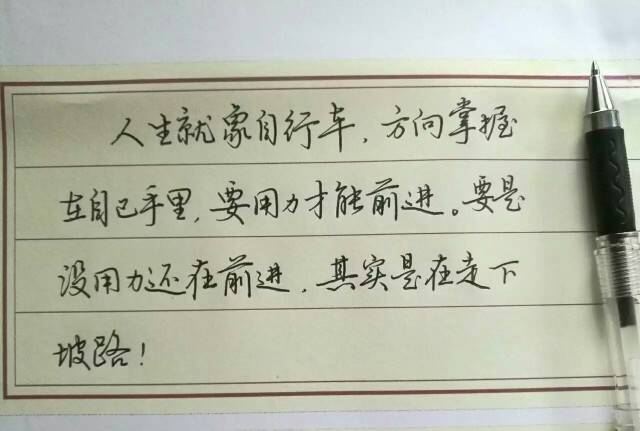 人生就象自行车，方向掌握
在自己手里，要用力才能前进。要是
没用力还在前进，其实是在走下
坡路！